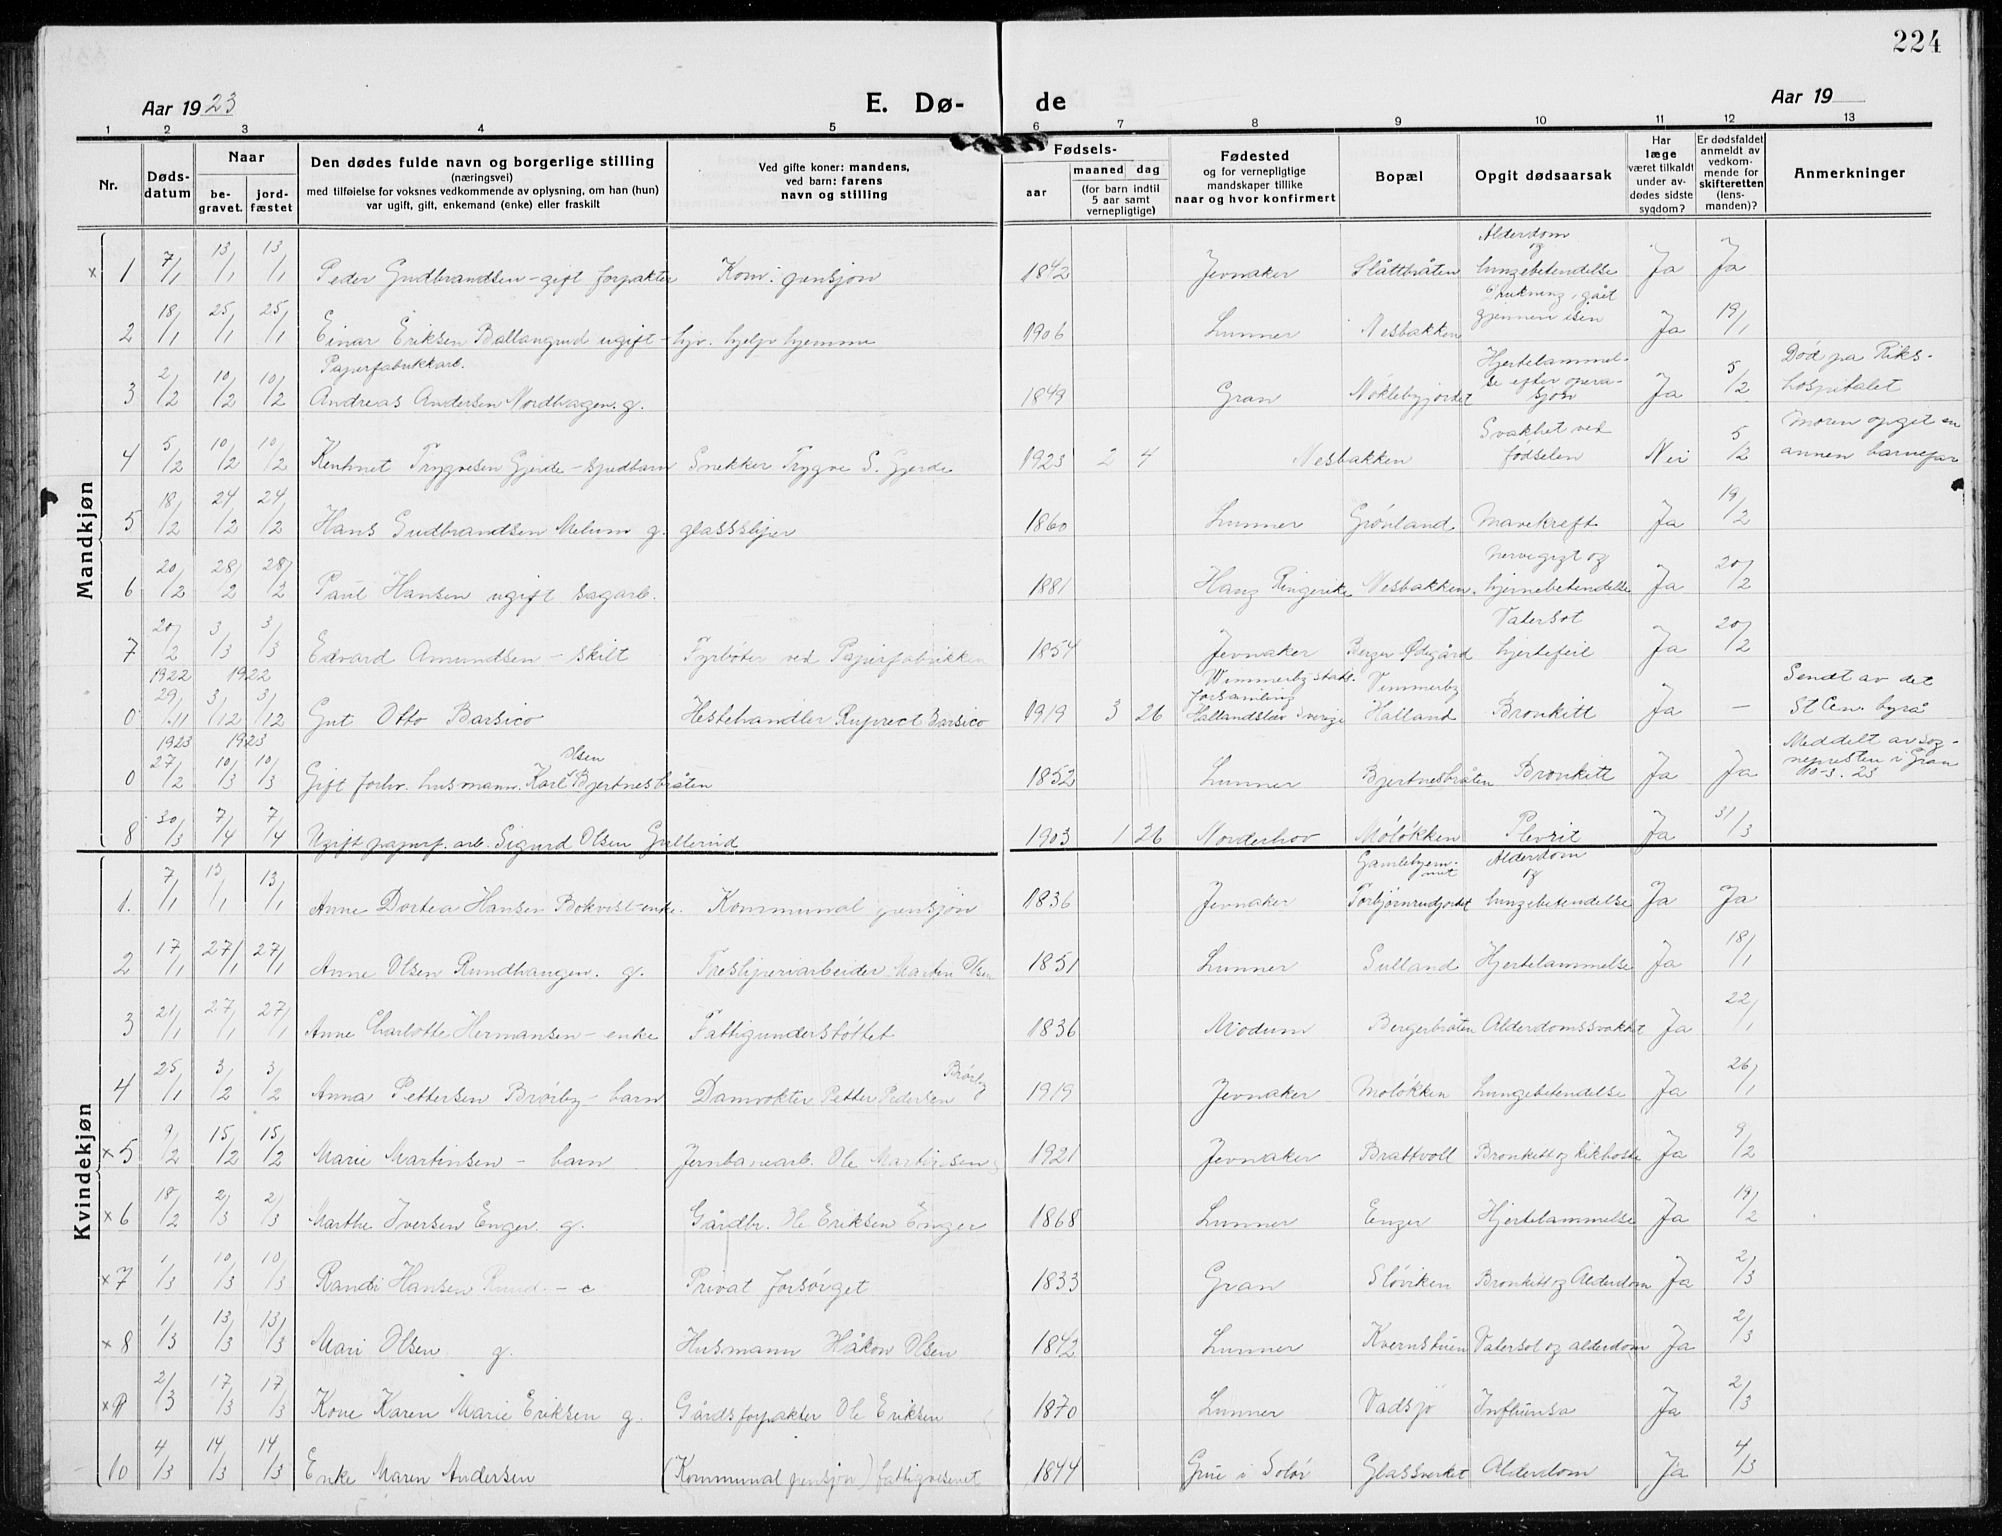 224
Aar 1923 E. Dø- de Aar 19
1 2 3 4 5 6 7 8 9 10 11 12 13
Nr.
Døds-
datum
Naar
be-
gravet.
jord-
fæstet
Den dødes fulde navn og borgerlige stilling
(næringsvei)
med tilføielse for voksnes vedkommende av oplysning, om han (hun)
var ugift, gift, enkemand (enke) eller fraskilt
Ved gifte koner: mandens,
ved barn: farens
navn og stilling
Fødsels-
aar
maaned dag
(for barn indtil
5 aar samt
vernepligtige)
Fødested
og for vernepligtige
mandskaper tillike
naar og hvor konfirmert
Bopæl
Opgit dødsaarsak
Har
læge
været tilkaldt
under av-
dødes sidste
sygdom?
Er dødsfaldet
anmeldt av
vedkom-
mende for
skifteretten
(lens-
manden)?
Anmerkninger
Mandkjøn
x 1 7/1 13/1 13/1 Peder Gudbrandsen - gift forpakter Kom. pensjon 1842 Jevnaker Slåttbråten Alderdom og lungebetendelse Ja Ja
2 18/1 25/1 25/1 Einar Eriksen Ballangrud ugift - hjv. hjelp hjemme 1906 Lunner Nesbakken Drukning, gåt gjennem isen Ja 19/1
3 2/2 10/2 10/2 Papirfabrikkarb. Andreas Andersen Nordhagen. g. 1849 Gran Nøklebyjordet Hjertelammelse efter operasjon Ja 5/2 Død på Rikshospitalet
4 5/2 10/2 10/2 Trygvesen Gjerde - spedbarn Snekker Trygve S. Gjerde 1923 2 4 Nesbakken Svakhet ved fødselen Nei 5/2 Moren opget en annen barnefar
5 18/2 24/2 24/2 Hans Gudbrandsen Melum g. glassliper 1860 Lunner Grønland Mavekreft Ja 19/2
6 20/2 28/2 28/2 Paul Hansen ugift sagarb. 1881 Haug Ringerike Nesbakken. Nervegigt og hjernebetendelse Ja 20/2
7 20/2 3/3 3/3 Edvard Amundsen - skilt Fyrbøter ved Papirfabrikken 1854 Jevnaker Berger Ødegård Vatersot hjertefeil Ja 20/2
1922 1922
0 29/11 3/12 3/12 Gut Otto Barsico Hestehandler Ruprect Barsico 1919 3 26 Wimmerby stads. forsamling Hallandslæn Sverige Vemmerby Halland Bronkitt Ja - Sendt av det St Cen. byrå
1923 1923
0 27/2 10/3 10/3 Gift forhv. husmann. Karl Olsen Bjertnesbråten 1852 Lunner Bjertnesbråten Bronkitt Ja Ja Meddelt av sognepresten i Gran 10-3. 23
8 30/3 7/4 7/4 Ugift papirf. arb. Sigurd Olsen Gullerud 1903 1 26 Norderhov Moløkken Plevrit Ja 31/3
Kvindekjøn
1. 7/1 13/1 13/1 Anne Dortea Hansen Bokvist - enke. Kommunal pensjon 1836 Jevnaker Gamlehjemmet Torbjørnrudjordet Alderdom og lungebetendelse Ja Ja
2 17/1 27/1 27/1 Anne Olsen Rundhaugen. g. Tresliperiarbeider Martin Olsen 1851 Lunner Sulland Hjertelammelse Ja 18/1
3 21/1 27/1 27/1 Anne Charlotte Hermansen - enke Fattigunderstøttet 1836 Modum Bergerbråten Alderdomssvakhet Ja 22/1
4 25/1 3/2 3/2 Anna Pettersen Brørby - barn Damvokter Petter Pedersen Brørby 1919 Jevnaker Moløkken Lungebetendelse Ja 26/1
x 5 9/2 15/2 15/2 Marie Martinsen - barn Jernbanearb. Ole Martinsen 1921 Jevnaker Brattvoll Bronkitt og kikhoste Ja 9/2
x 6 18/2 2/3 2/3 Marthe Iversen Enger. g. Gårdbr. Ole Eriksen Enger 1868 Lunner Enger Hjertelammelse Ja 19/2
x 7 1/3 10/3 10/3 Randi Hansen Ruud - e Privat forsørget 1833 Gran Sløviken Bronkitt og Alderdom Ja 2/3
x 8 1/3 13/3 13/3 Mari Olsen g. Husmann Håkon Olsen 1842 Lunner Kvernstuen Vatersot og alderdom Ja 2/3
x 9 2/3 17/3 17/3 Kone Karen Marie Eriksen g. Gårdsforpakter Ole Eriksen 1870 Lunner Vadsjø Influensa Ja 2/3
10 4/3 14/3 14/3 Enke Maren Andersen (Kommunal pensjon) fattigvesenet 1844 Grue i Solør Glassverket Alderdom Ja 4/3